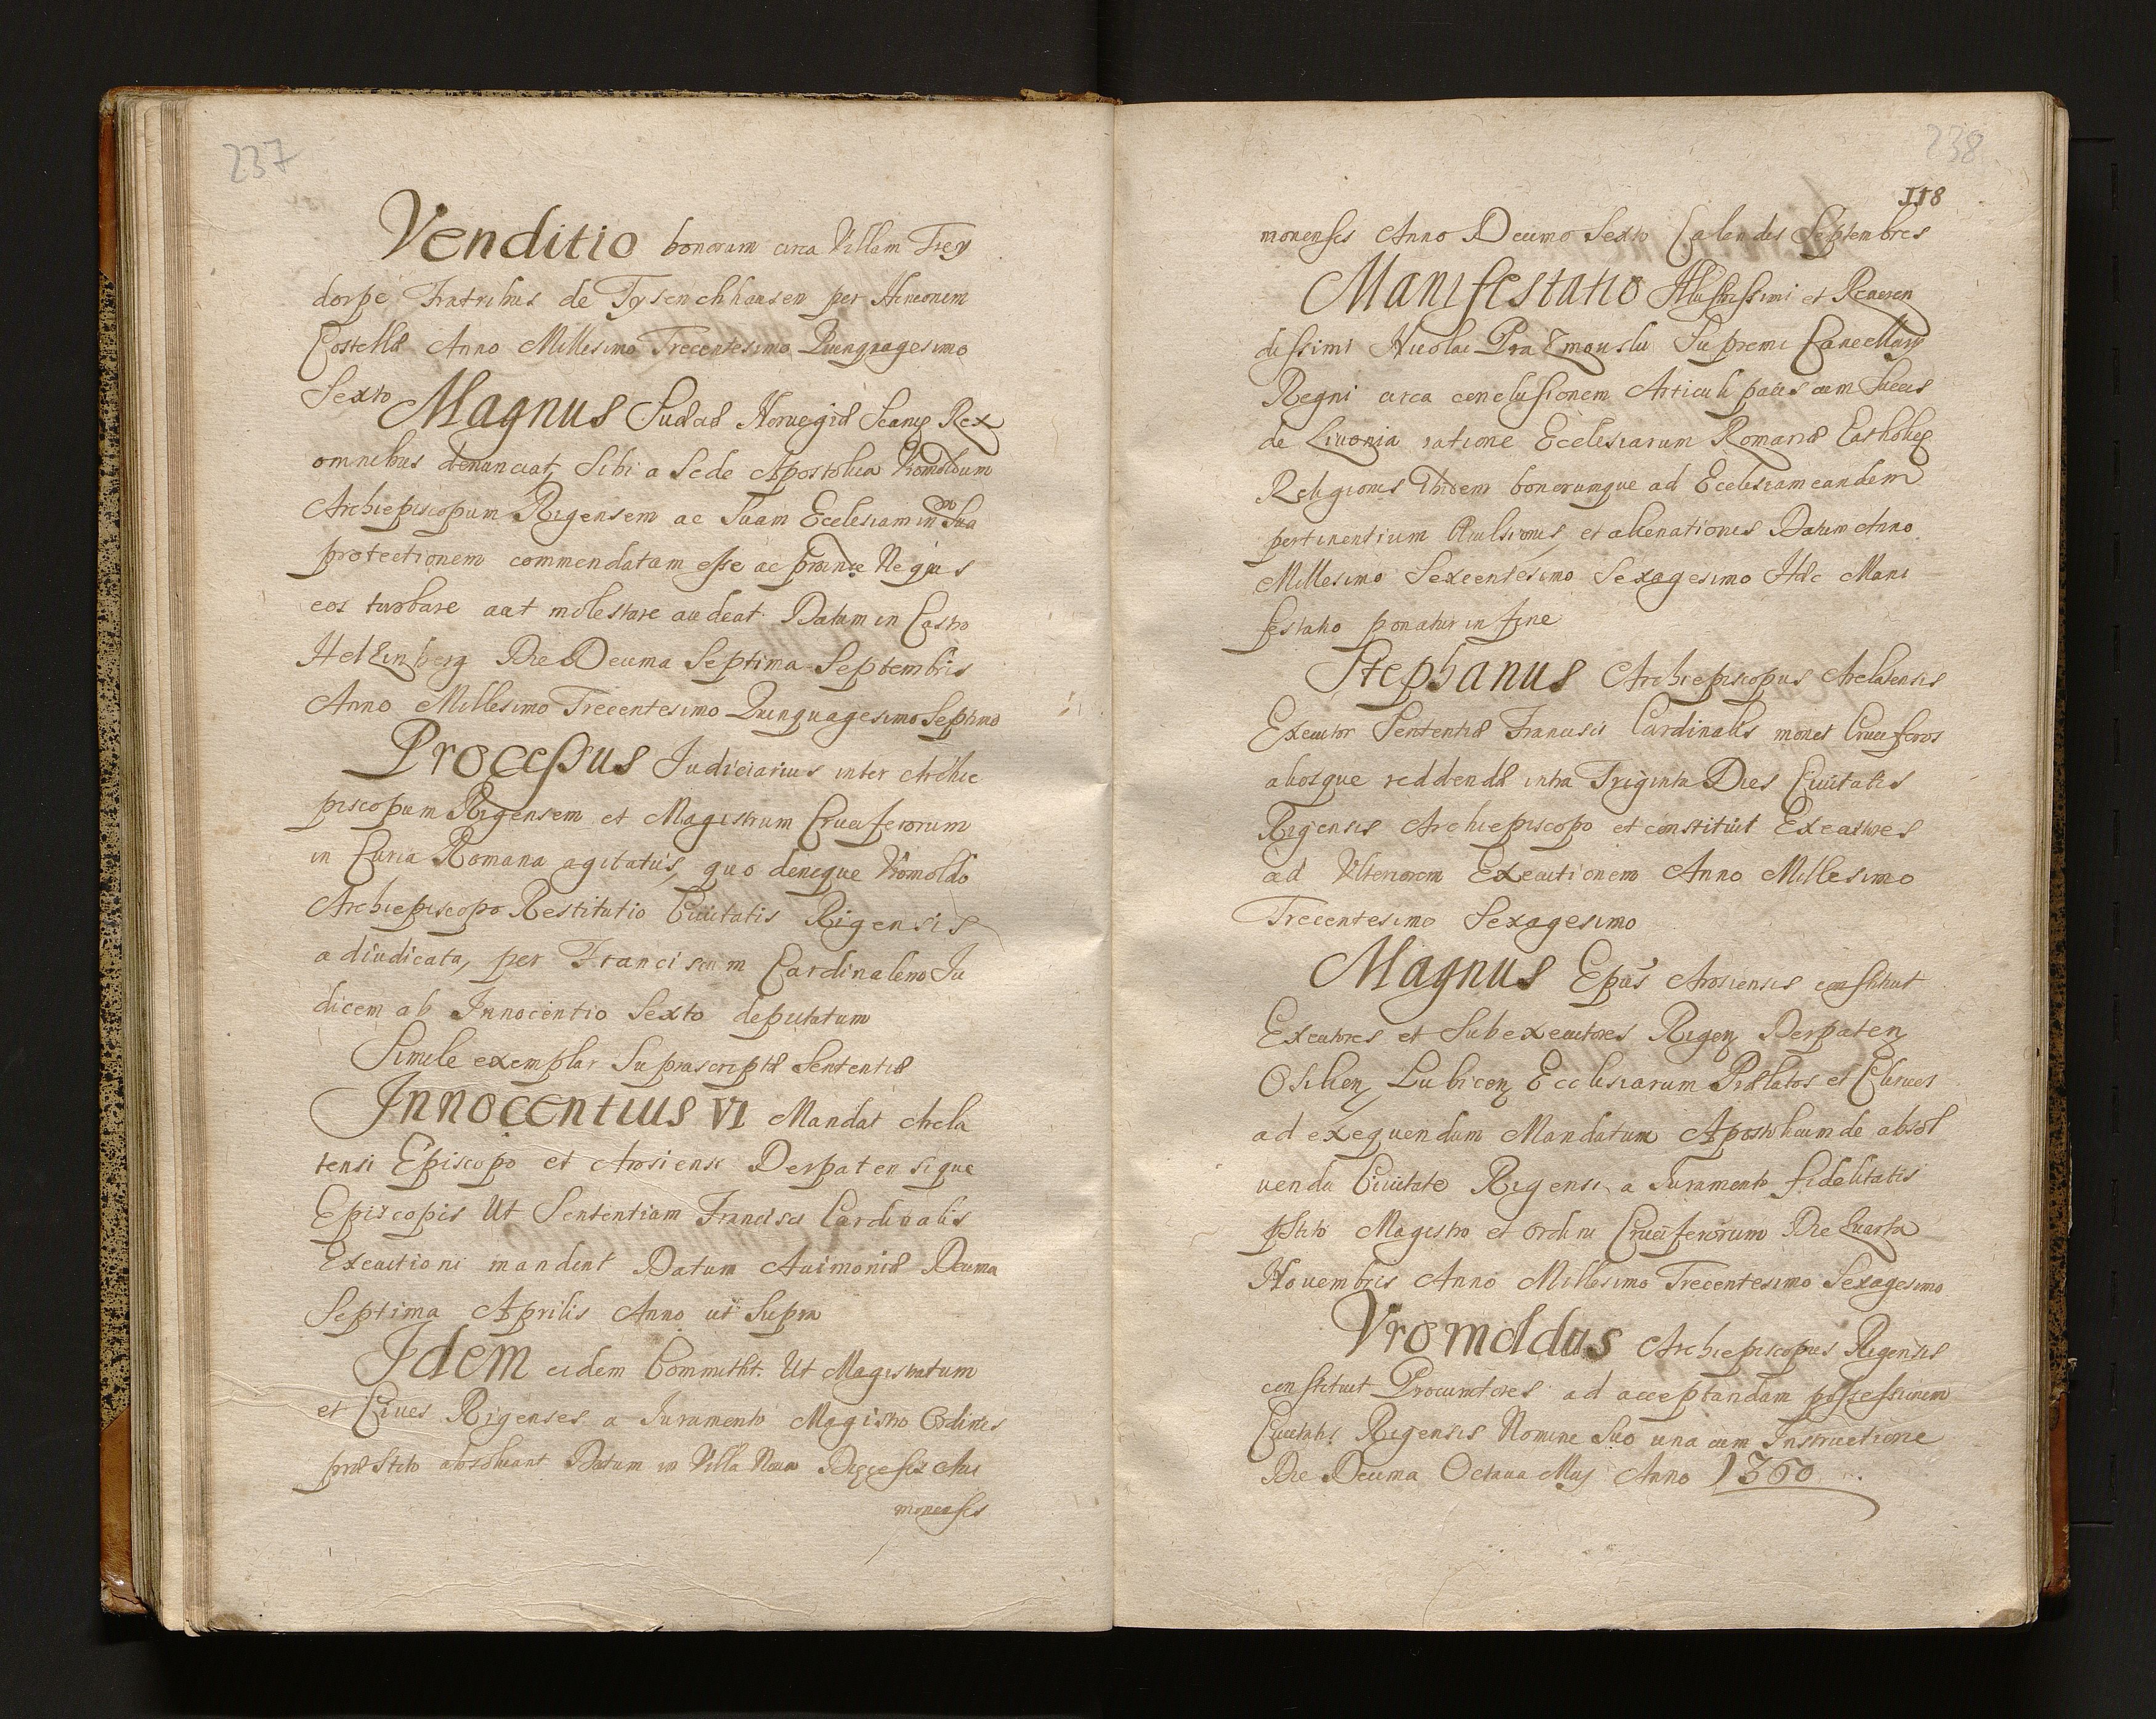 237
Venditio bonorum circa Villam Trey
dorpe Fratribus de Tysenchhausen per Hineonem
Costellæ Anno Millesimo Trecentesimo Quinquagesimo
Sexto
Magnus Suæciæ Noruegiæ Scanię Rex
omnibus denunciat, Sibi a Sede Apostolica Vromoldum
Archiepiscopum Rigensem ac Suam Ecclesiam in Sua
protectionem commendatam esse ac proinde Ne quis
eos turbare aut molestare audeat Datum in Castro
Helzinberg Die Decima Septima Septembris
Anno Millesimo Trecentesimo Quinquagesimo Septimo
Processus Judiciarius inter Archie
piscopum Rigensem et Magistrum Cruciferorum
in Curia Romana agitatus, quo denique Vromoldo
Archiepiscopo Restitutio Ciuitatis Rigensis
adiudicata, per Franciscum Cardinalem Ju
dicem ab Innocentio Sexto deputatum
Simile exemplar Suprascriptæ Sententiæ
Innocentius VI Mandat Arela
tensi Episcopo et Arosiensi Derpatensique
Episcopis Ut Sententiam Francisci Cardinalis
Executioni mandent Datum Auinioniæ Decima
Septima Aprilis Anno ut Supra
Idem eidem Committit. Ut Magistratum
et Ciues Rigenses a Juramento Magistro Ordinis
præstito absoluant Datum in Villa Noua Dięcesis Aui
monensis
238
118
monensis Anno Decimo Sexto Calendis Septembres
Manifestatio Illustrissimi et Reueren
dissimi Nicolai Prazmouski Supremi Cancellarij
Regni circa conclusionem Articuli pacis cum Suecis
de Liuonia ratione Ecclesiarum Romanæ Catholicę
Religionis Ibidem bonorumque ad Ecclesiam eandem
pertinentium Auulsionis, et alienationis Datum Anno
Millesimo Sexcentesimo Sexagesimo Hæc Mani
festatio ponatur in fine
Stephanus Archiepiscopus Arelatensis
Executor Sententiæ Francisci Cardinalis monet Cruciferos
aliosque reddendæ intra Triginta Dies Ciuitatis
Rigensis Archiepiscopo et constituit Executores
ad Vlteriorem Executionem Anno Millesimo
Trecentesimo Sexagesimo
Magnus Epus Arosiensis constituit
Executores et Subexecutores Rigen Derpaten
Osilien, Lubicen Ecclesiarum Prælatos et Clericos
ad exequendum Mandatum Apostolicum de absol
uenda Ciuitate Rigensi a Juramento fidelitatis
pstito Magistro et Ordini Cruciferorum Die Quarta
Nouembris Anno Millesimo Trecentesimo Sexagesimo
Vromoldus Archiepiscopus Rigensis
constituit Procuratores ad acceptandam possessionem
Ciuitatis Rigensis Nomine Suo una cum Instructione
Die Decima Octaua Maij Anno 1360